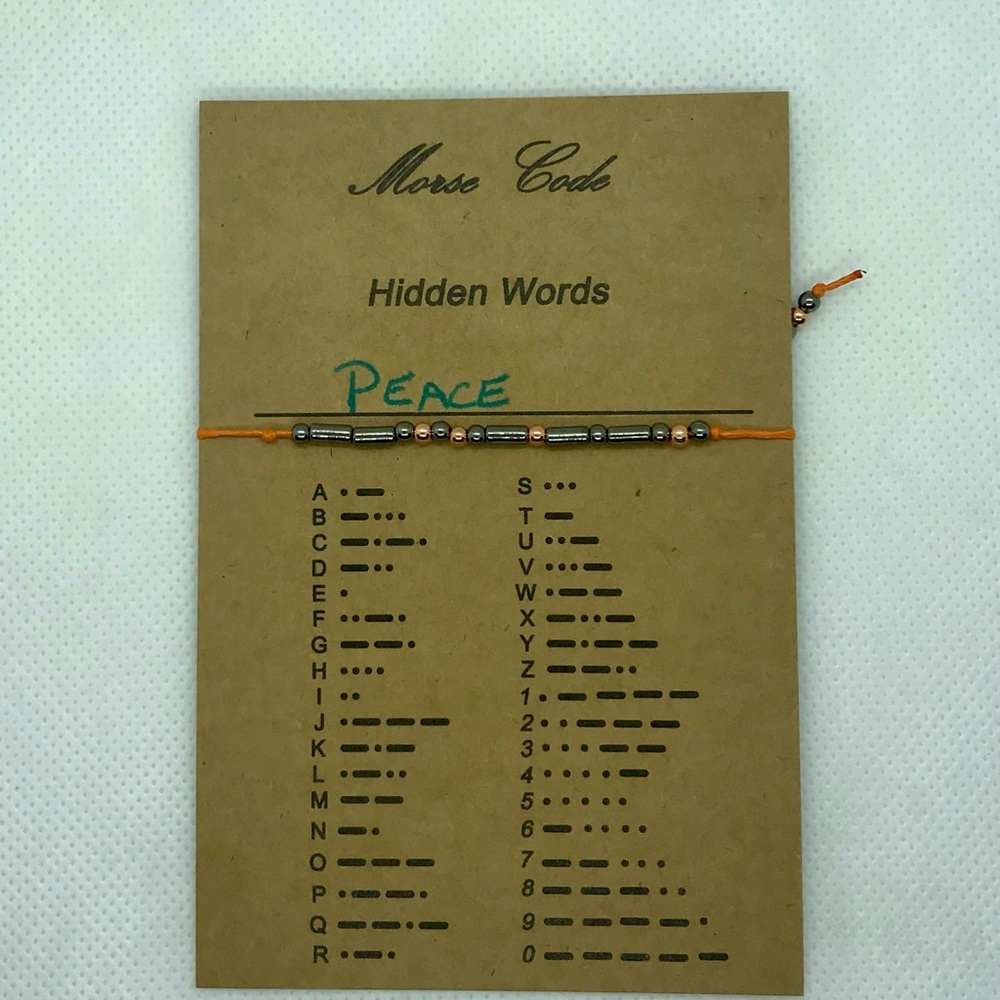 Morse Code
Hidden Words
PEACE
A •—
B —•••
C —•—•
D —••
E •
F ••—•
G ——•
H ••••
I ••
J •———
K —•—
L •—••
M ——
N —•
O ———
P •——•
Q ——•—
R •—•
S •••
T —
U ••—
V •••—
W •——
X —••—
Y —•——
Z ——••
1 •————
2 ••———
3 •••——
4 ••••—
5 •••••
6 —••••
7 ——•••
8 ———••
9 ————•
0 —————